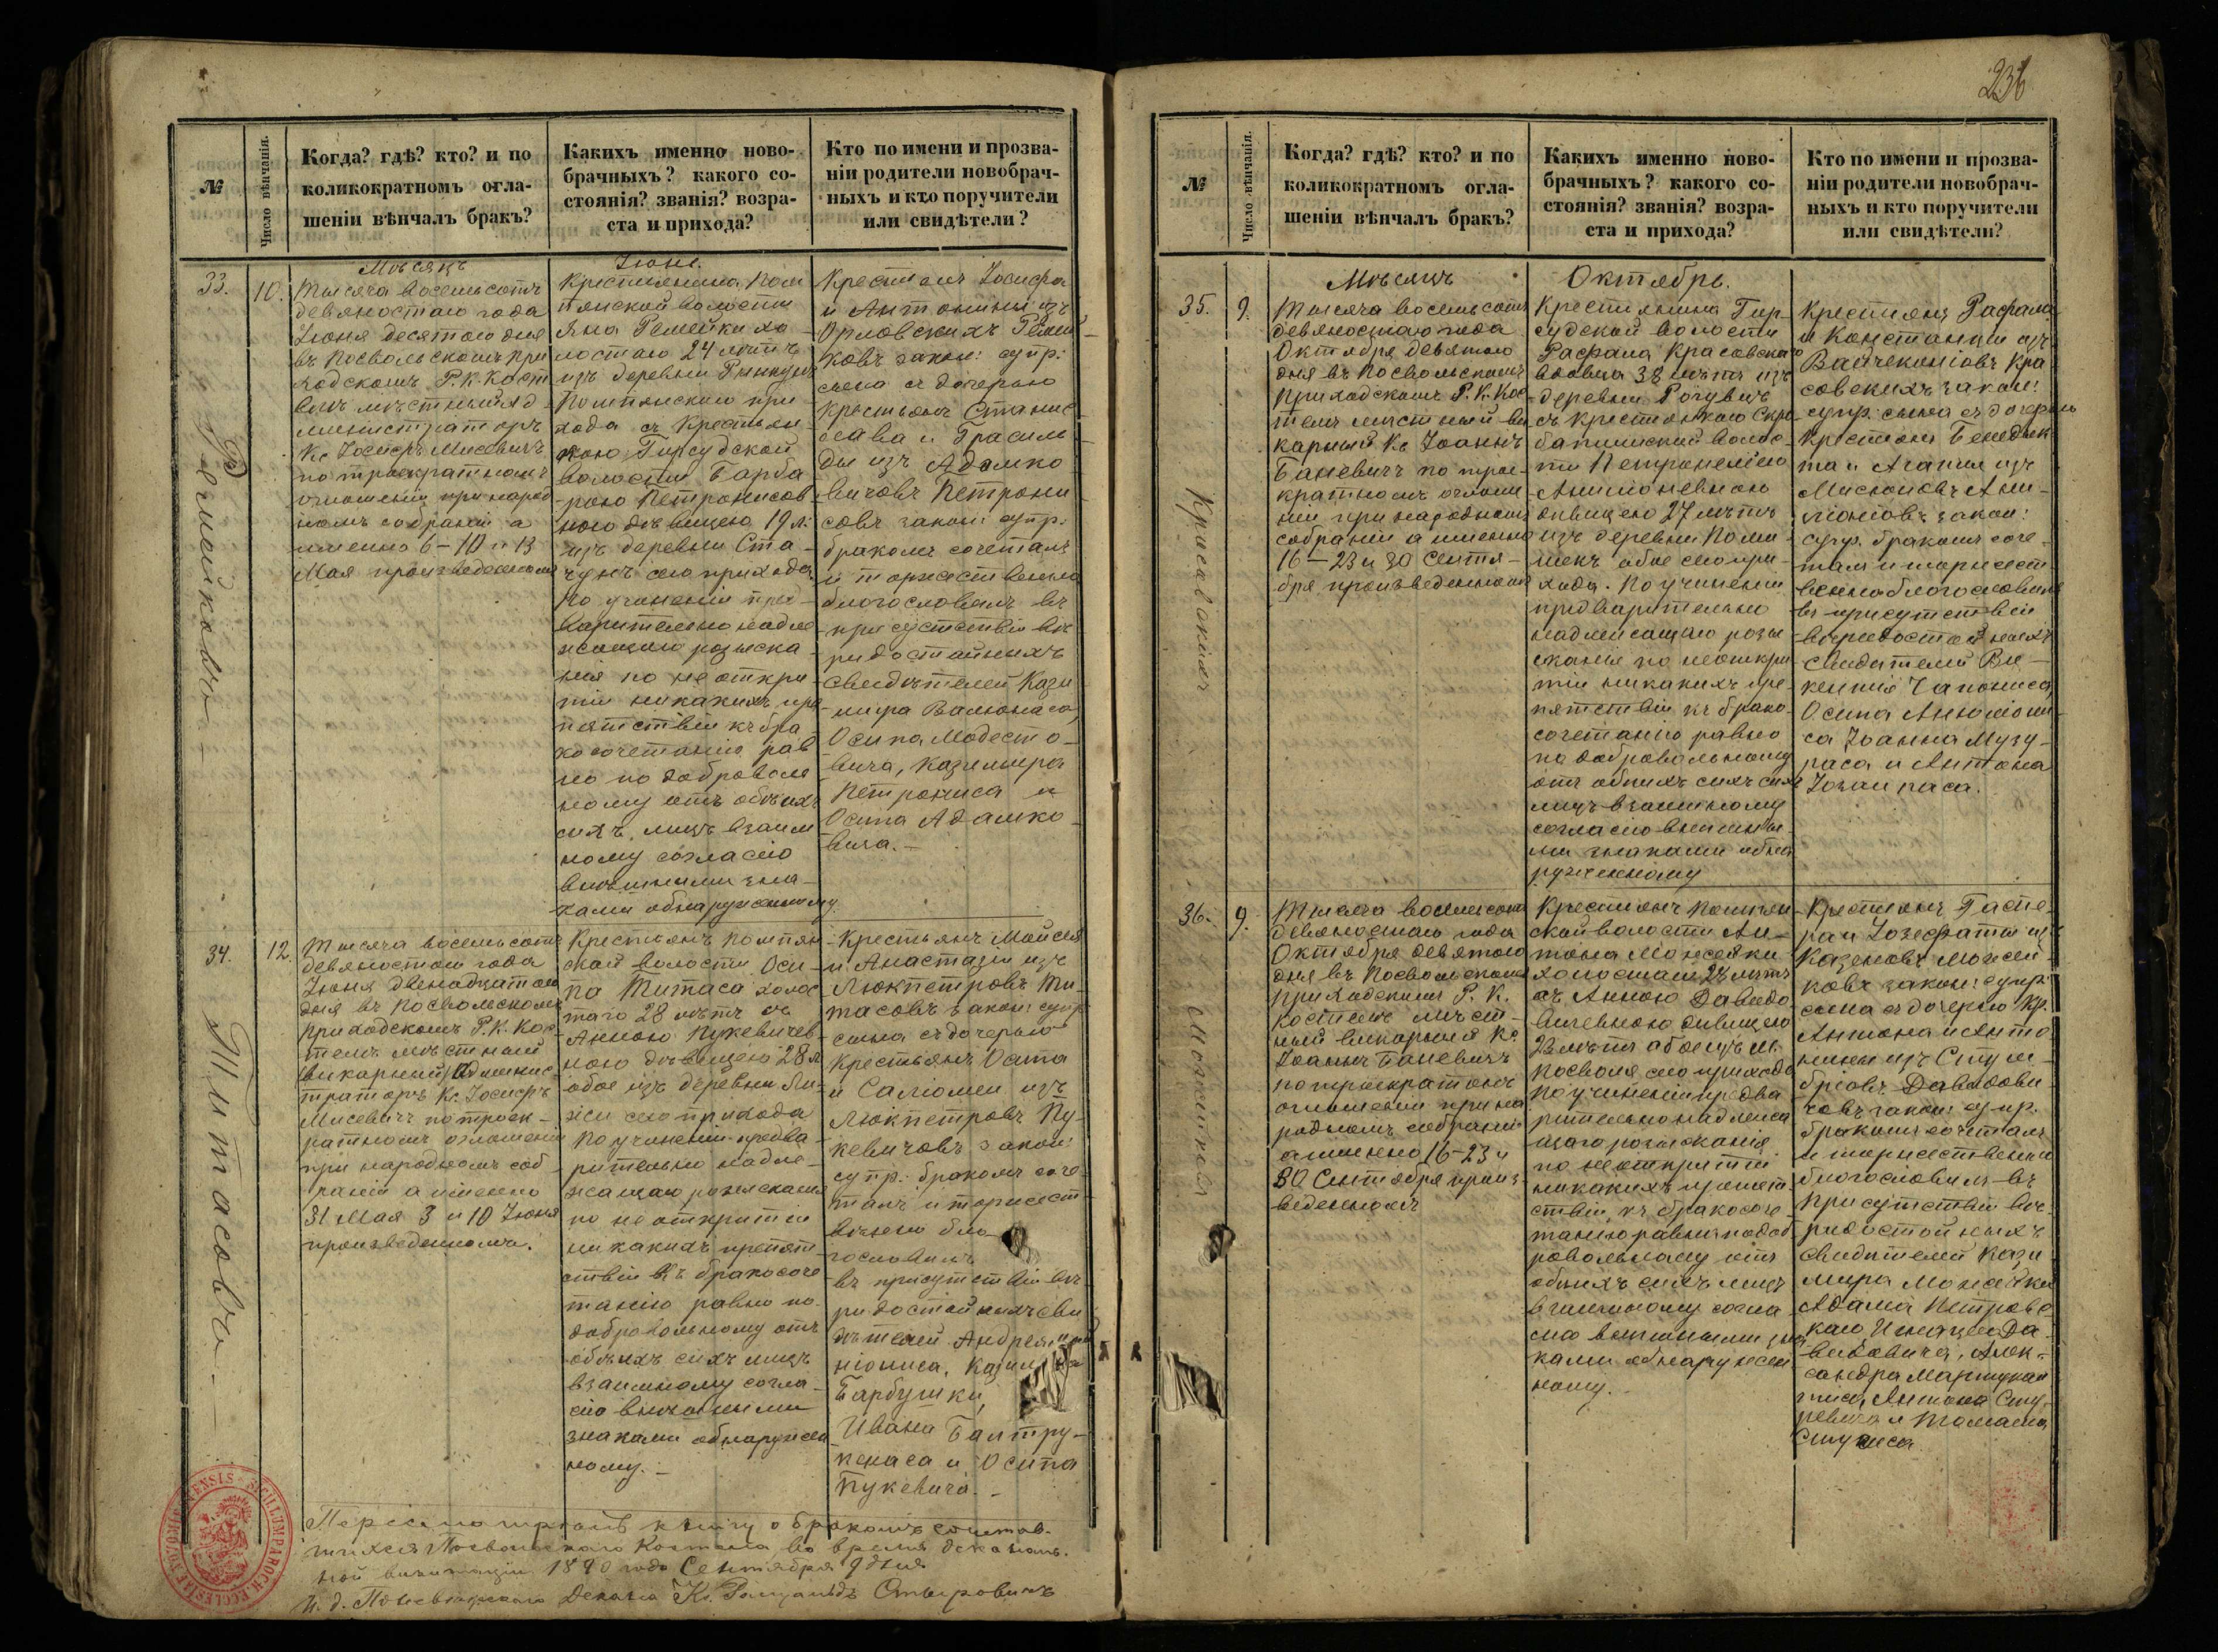 №
Число вѣнчанія.
Когда? гдѣ? кто? и по
коликократномъ огла-
шеніи вѣнчалъ бракъ?
Какихъ именно ново-
брачныхъ? какого со-
стоянія? званія? возра-
ста и прихода?
Кто по имени и прозва-
ніи родители новобрач-
ныхъ и кто поручители
или свидѣтели?
Мѣсяцъ
Іюнь.
33.
10.
Тысяча восемьсотъ
девяностаго года
Іюня десятого дня
въ Посвольскомъ при
ходскомъ Р. К. Кост
елѣ мѣстный ад
министраторъ
Кс. Іосифъ Мисевичъ
по троекратномъ
оглошеніи при народ
номъ собраніи а
именно 6–10 и 13
Мая произведенномъ
Крестьянина Пом
пянской волости
Яна Ремейки хо
лостаго 24 лѣтъ
изъ деревни
Помпянскаго при
хода съ Крестьян
кою Гирсудской
волости Барба
рою Петронисов
ною дѣвицею 19 л:
изъ деревни Ста
чунъ сего прихода
По учиненіи пред
варительно надле
жащаго розыска
нія по не откры
тіи никакихъ пре
пятствій къ бра
косочетанію рав
но по доброволь
ному отъ обѣихъ
сихъ лицъ взаим
ному согласію
внѣшними зна
ками обнаруженному
Крестьянъ Іосифа
и Антонины изъ
Орловскихъ Ремей
ковъ закон: супр:
сына съ дочерью
Крестьянъ Станис
лава и Грасиль
ды изъ Адамко
вичовъ Петрони
совъ закон: супр:
бракомъ сочеталъ
и торжественно
благословилъ въ
присутствіи вѣ
ридостойныхъ
свидѣтелей Кази
мира Валюнаса,
Осипа Модесто-
вича, Казимира
Петрониса и
Осипа Адамко-
вича.–
Ремейково–
34.
12.
Тысяча восемьсотъ
девяностаго года
Іюня двенадцатаго
дня въ Посвольскомъ
приходскомъ Р. К. Кос
телѣ мѣстный
викарный админис
траторъ Кс. Іосифъ
Мисевичъ по троек-
ратномъ оглошеніи
при народномъ соб
раніи а именно
31 Мая 3 и 10 Іюня
произведенномъ.
Крестьянъ Помпян
ской волости Оси
па Титаса холос
таго 28 лѣтъ съ
Анною Пукевичев
ною дѣвицею 28 л
обое изъ деревни
сего прихода
По учиненіи предва
рительно надле
жащаго розысканія
по не открытіи
никакихъ препят
ствій къ бракосоче
танію равно по
добровольному отъ
обѣихъ сихъ лицъ
взаимному согла
сію внѣшними
знаками обнаружен
ному.–
Крестьянъ Мойсея
и Анастазіи изъ
Люкпетровъ Ти-
тасовъ закон: супр
сына съ дочерью
Крестьянъ Осипа
и Саломеи изъ
Люкпетровъ Пу-
кевичовъ закон:
супр: бракомъ соче
талъ и торжест
венно бла-
гословилъ
въ присутствіи вѣ
ридостойныхъ сви
дѣтелей Андрея
Барбушки,
Ивана Балтру-
кенаса и Осипа
Пукевича.–
Титасово–
Пересматривалъ книгу о бракомъ сочетав-
шихся Посвольскаго Костела во время декональ-
ной визитаціи 1890 года Сентября 9 дня
И. д. Поневѣжскаго Декана Кс.
236
№
Число вѣнчанія.
Когда? гдѣ? кто? и по
коликократномъ огла-
шеніи вѣнчалъ бракъ?
Какихъ именно ново-
брачныхъ? какого со-
стоянія? званія? возра-
ста и прихода?
Кто по имени и прозва-
ніи родители новобрач-
ныхъ и кто поручители
или свидѣтели?
Мѣсяцъ
Октябрь.
35.
9.
Тысяча восемьсотъ
девяностаго года
Октября девятого
дня въ Посвольскомъ
приходскомъ Р. К. Кос
телѣ мѣстный ви
карный Кс Іоаннъ
Баневичъ по трое-
кратномъ оглоше
ніи при народномъ
собраніи а именно
16–23 и 30 Сентя-
бря произведенномъ
Крестьянина Гир-
судской волости
Рафала Красовскаго
вдовца 38 лѣтъ изъ
деревни
съ крестьянкою Скро
батишской волос
ти Петронелією
дѣвицею 27 лѣтъ
изъ деревни
обое сего при-
хода. По учиненіи
предварительно
надлежащаго розы
сканія по неоткры
тіи никакихъ пре-
пятствій къ брако-
сочетанію равно
по добровольному
отъ обѣихъ сихъ
лицъ взаимному
согласію внѣшны-
ми знаками обна
руженному
Крестьянъ Рафала
и Констанціи изъ
Вайчеконіовъ Кра
совскихъ закон:
супр: сына съ дочерью
Крестьянъ Бенедык
та и Агапіи изъ
закон:
супр. бракомъ соче-
талъ и торжест
венно благословилъ
въ присутствіи
вѣридостойныхъ
свидѣтелей Ви-
кентія Чапониса,
Осипа
Іоанна Музу-
раса и Антона
Красовскихъ
36.
9.
Тысяча восемьсотъ
девяностаго года
Октября девятого
дня въ Посвольскомъ
приходскомъ Р. К.
костелѣ мѣст-
ный викарный Кс
Іоаннъ Баневичъ
по троекратномъ
оглошеніи при на
родномъ собраніи
а именно 16–23 и
30 Сентября произ-
веденномъ
Крестьянъ Помпян
ской волости Ан-
тона Можсейки
холостаго 28 лѣтъ
съ Анною Давидо
вичевною дѣвицею
23 лѣтъ обое изъ м.
Посволя сего прихода
По учиненіи предва
рительно надлежа
щаго розысканія
по неоткрытіи
никакихъ препят
ствій къ бракосоче
танію равно подоб
ровольному отъ
обѣихъ сихъ лицъ
взаимному согла
сію внѣшными зна
ками обнаружен
ному.
Крестьянъ Гаспе
ра и Іозефаты изъ
Казеновъ Можсей
ковъ закон: супр:
сына съ дочерью Кр.
Антона и Анто
нины изъ Стум-
бріовъ Давидови
човъ закон: супр.
бракомъ сочеталъ
и торжественно
благословилъ въ
присутствіи вѣ-
ридостойныхъ
свидѣтелей Кази
мира
Адама Петровс
каго Игнація Да
видовича, Алек-
сандра
Антона
и Томаша